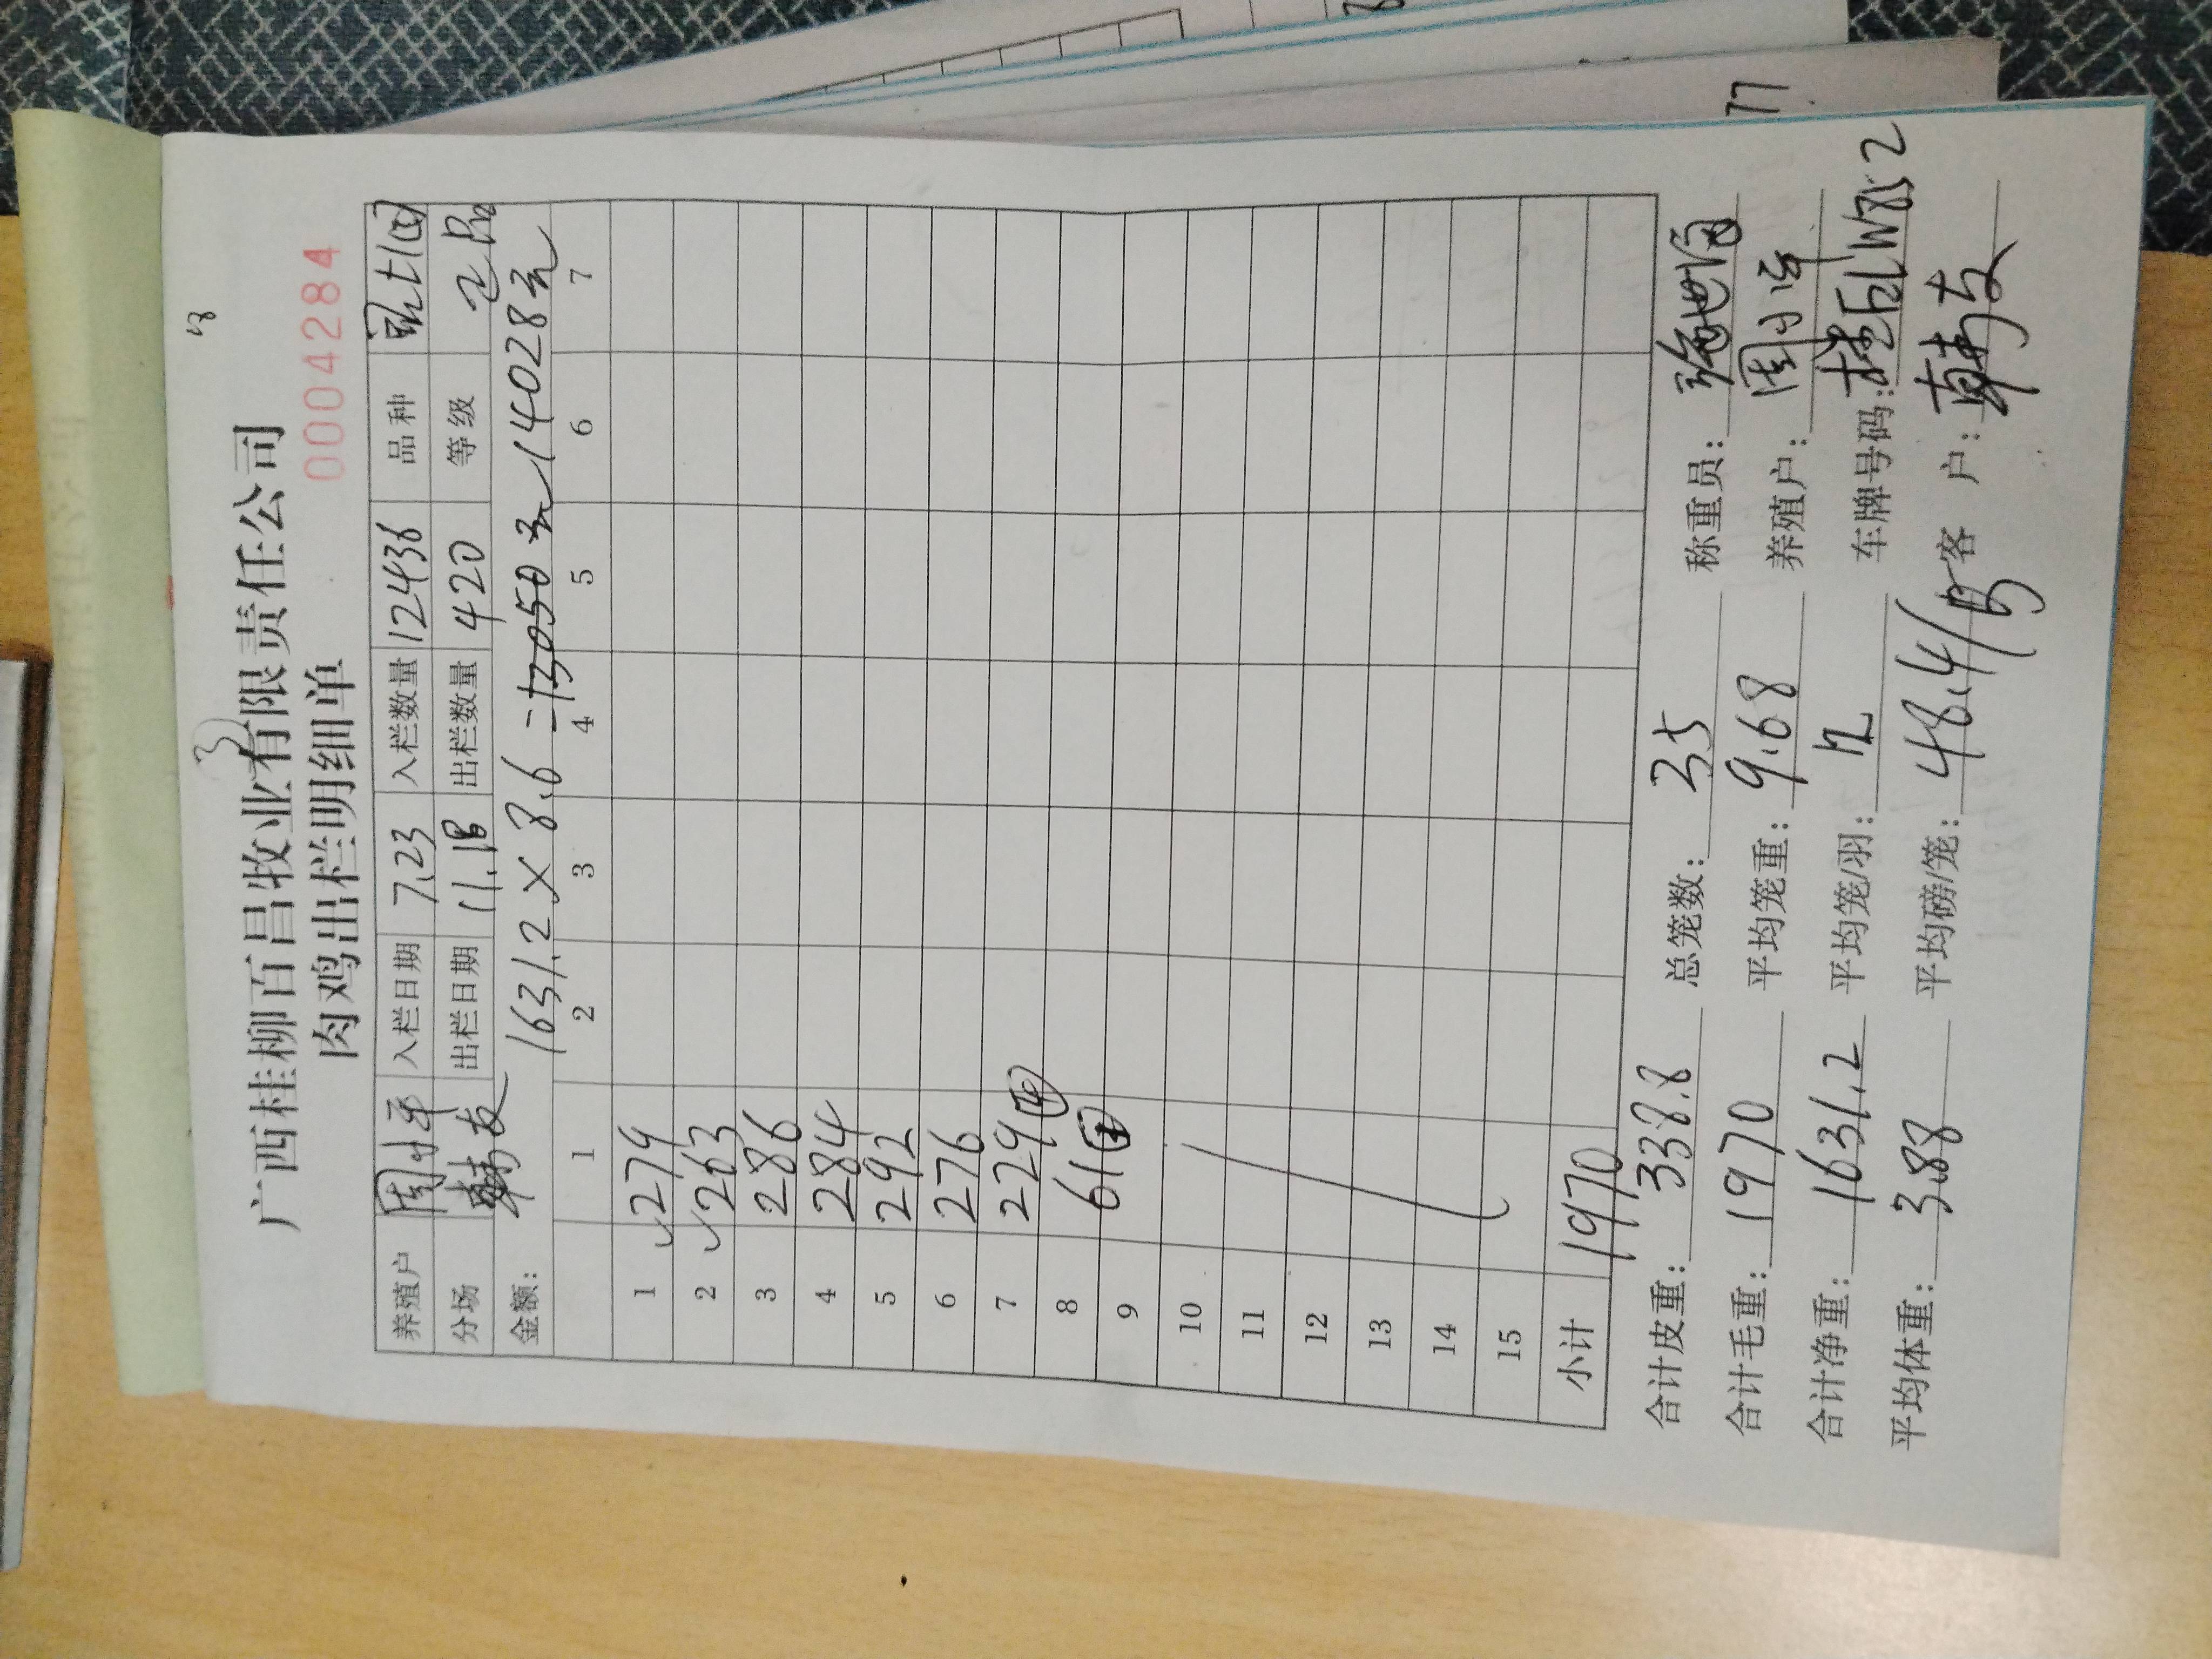 3
广西桂柳百昌牧业有限责任公司
肉鸡出栏明细单
0004284
养殖户 周小平 入栏日期 7.23 入栏数量 12436 品种
分场 韩友 出栏日期 11.18 出栏数量 420 等级 正品
金额: 1631.2×8.6=13050元 14028元
1 2 3 4 5 6 7
1 ✓274
2 ✓263
3 286
4 284
5 292
6 276
7 229④
8 61
9
10
11
12
13
14
15
小计 1970
合计皮重: 338.8 总笼数: 35 称重员:
合计毛重: 1970 平均笼重: 9.68 养殖户: 周小平
合计净重: 1631.2 平均笼/羽: 12 车牌号码:
平均体重: 3.88 平均磅/笼: 48.4/5 客户: 韩友
77